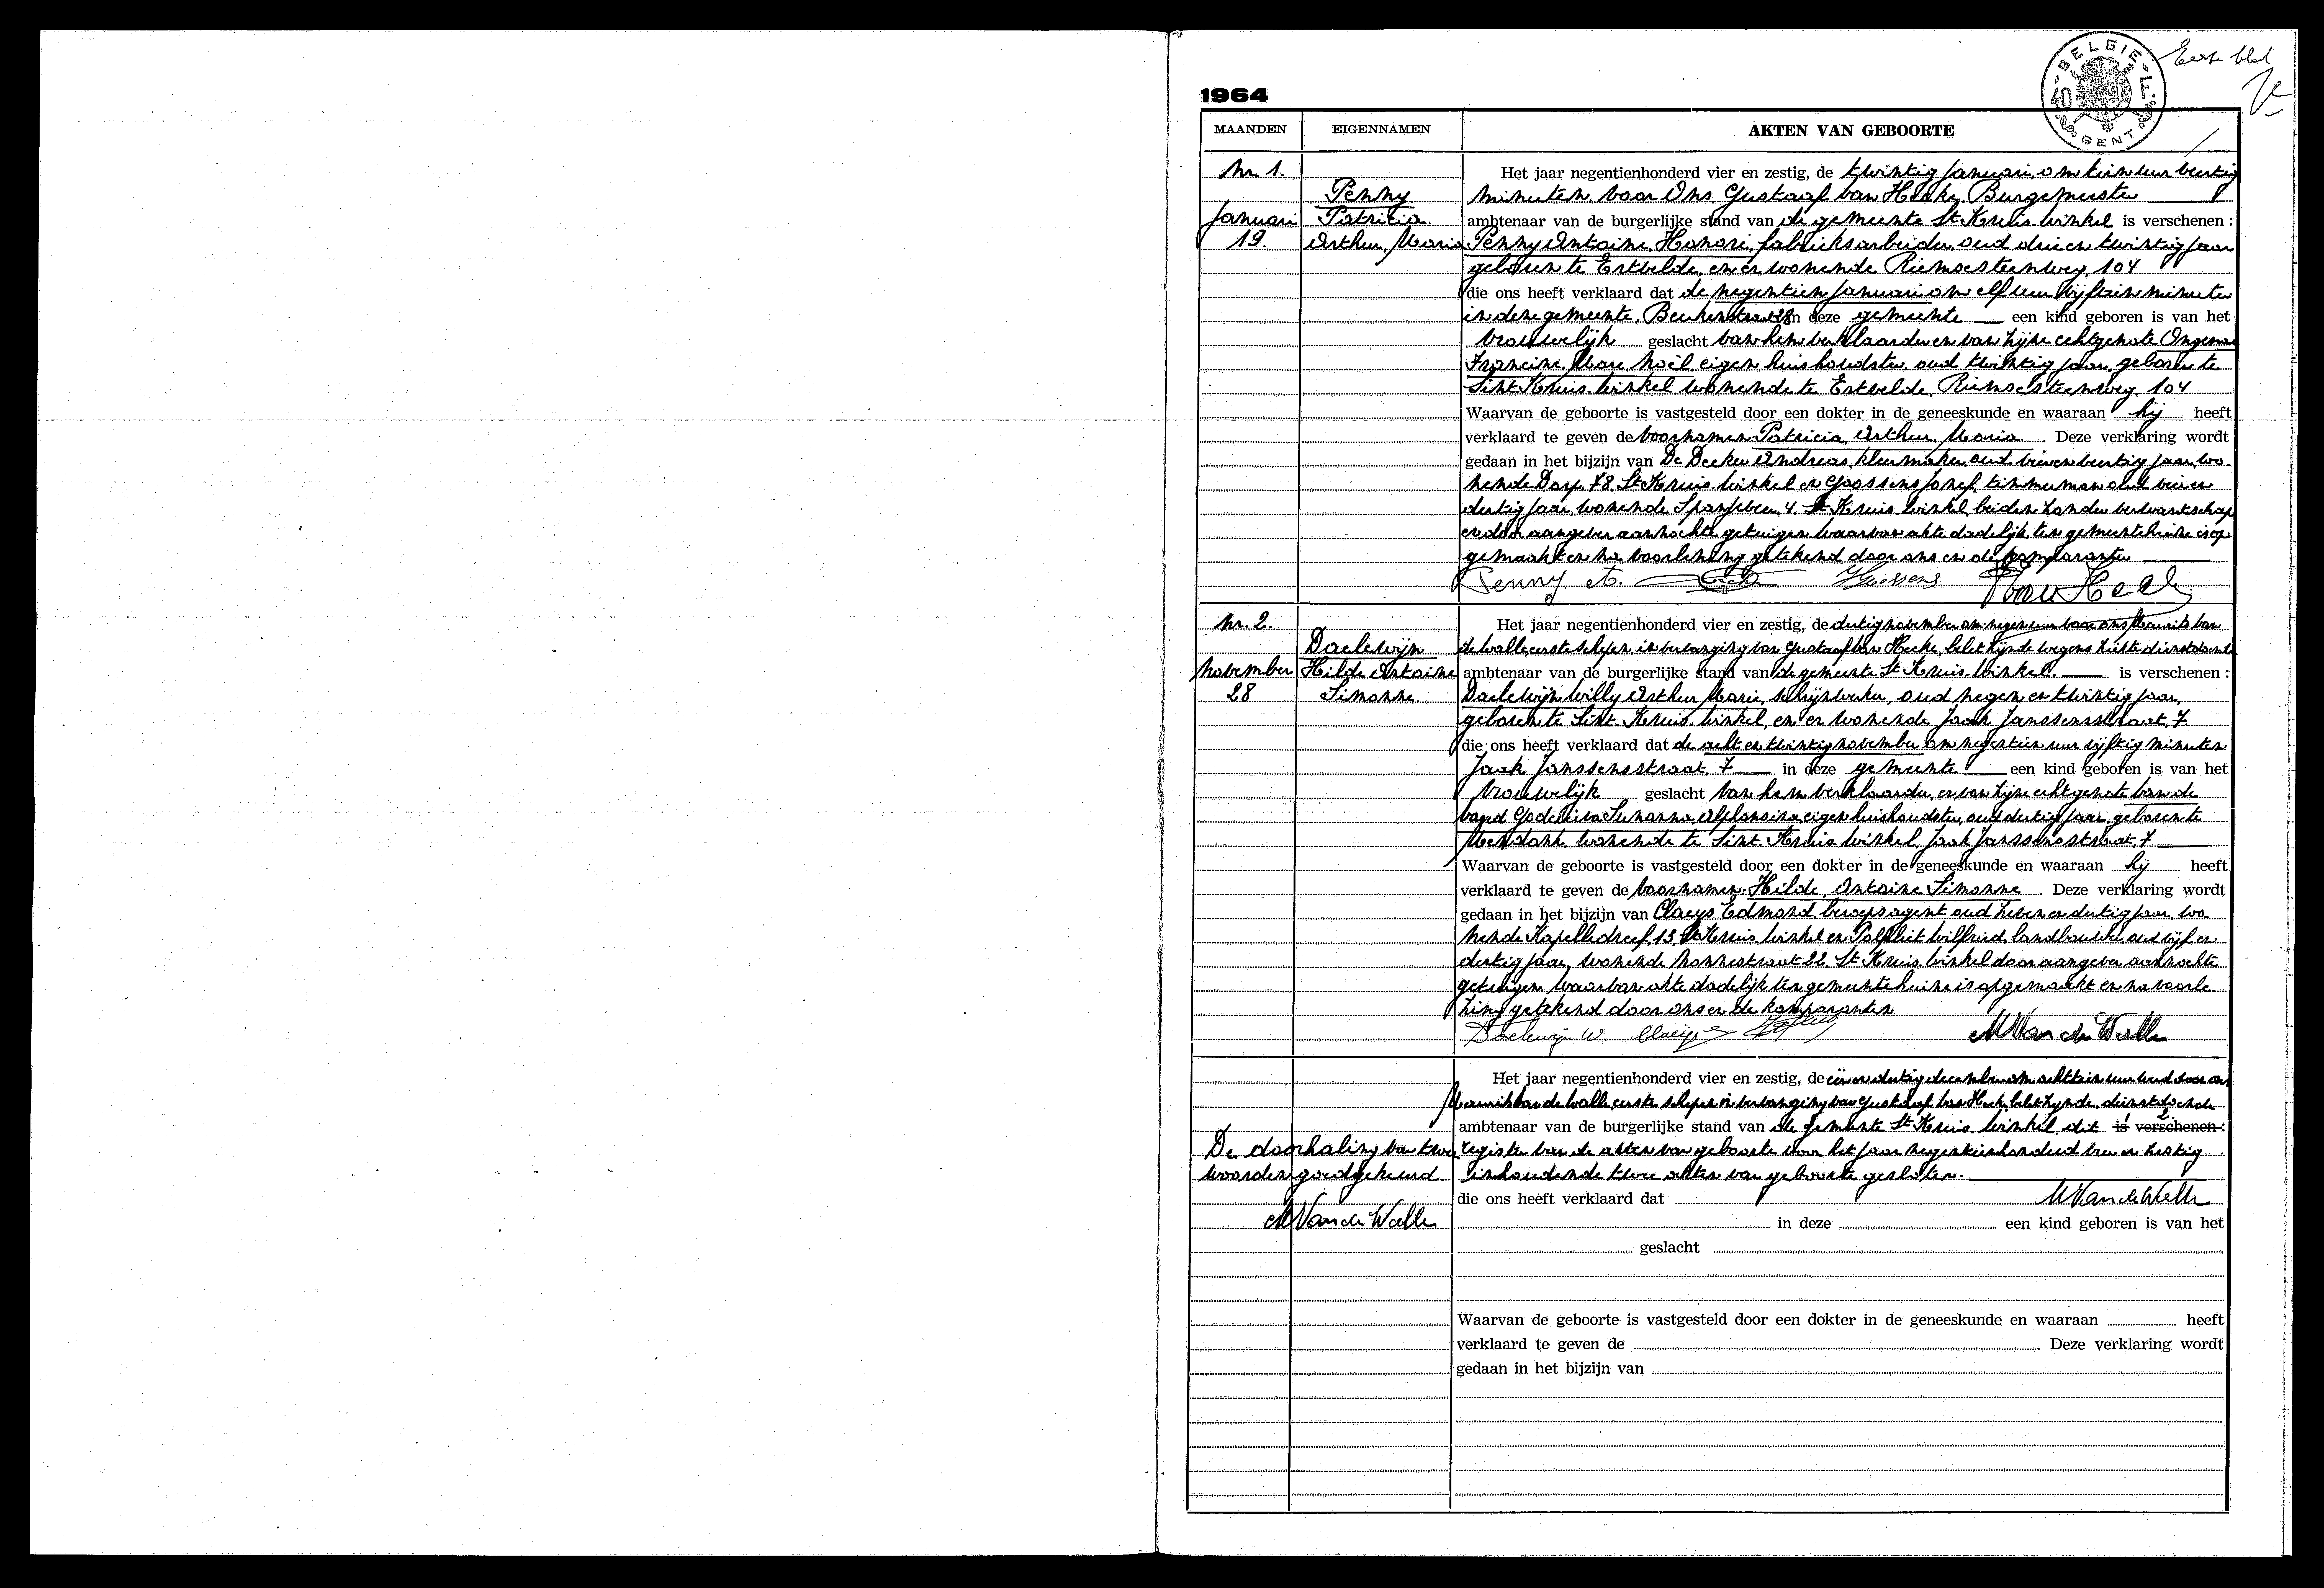 Eerste blad
BELGIE
40 F.
GENT
1964
MAANDEN EIGENNAMEN AKTEN VAN GEBOORTE
Nr 1. Het jaar negentienhonderd vier en zestig, de twintig Januari, om tien uur veertig
Penny minuten voor Ons Gustaaf Van Hecke, Burgemeester
Januari Patricia ambtenaar van de burgerlijke stand van de gemeente St Kruis Winkel is verschenen :
19. Arthur, Maria Penny Antoine, Honoré, fabrieksarbeider, oud drie en twintig jaar
geboren te Ertvelde, en er wonende Riemsesteenweg, 104
die ons heeft verklaard dat de negentien Januari om elf uur vijftien minuten
in deze gemeente, in deze gemeente een kind geboren is van het
vrouwelijk geslacht van hem verklaarder en van zijne echtgenote
Francine, Marie, Noël eigen huishoudster, oud twintig jaar, geboren te
Sint Kruis Winkel wonende te Ertvelde, Riemsesteenweg, 104
Waarvan de geboorte is vastgesteld door een dokter in de geneeskunde en waaraan hij heeft
verklaard te geven de voornamen: Patricia, Arthur, Maria. Deze verklaring wordt
gedaan in het bijzijn van De Decker Andreas, kleermaker, oud veertig jaar, wo
nende Dorp, 78, St Kruis Winkel en Goossens Jozef, timmerman oud vier en
dertig jaar, wonende Spanjeveer, 4. St Kruis Winkel, beiden zonder verwantschap
en door aangever aanzochte getuigen, waarvan akte dadelijk ten gemeentehuize is op
gemaakt en na voorlezing getekend door ons en de komparanten
Penny A. Van Hecke
Nr. 2. Het jaar negentienhonderd vier en zestig, de dertig november om negen uur voor ons Maurits Van
Daelewijn de Walle, eerste schepen, in vervanging van Gustaaf Van Hecke, belet zijnde wegens ziekte dienstdoende
November Hilde Antoine ambtenaar van de burgerlijke stand van de gemeente St Kruis Winkel. is verschenen :
28 Simonne Daelewijn Willy Arthur Marie, schrijnwerker, oud negen en twintig jaar,
geboren te Sint. Kruis Winkel, en er wonende Jaak Janssensstraat, 7.
die ons heeft verklaard dat de acht en twintig november om negentien uur vijftig minuten
Jaak Janssensstraat, 7 in deze gemeente een kind geboren is van het
vrouwelijk geslacht van hem verklaarder, en van zijne echtgenote Van de
Godelieva Suzanna, Alphonsina eigen huishoudster, oud dertig jaar, geboren te
Mendonk wonende te Sint. Kruis Winkel, Jaak Janssensstraat, 7
Waarvan de geboorte is vastgesteld door een dokter in de geneeskunde en waaraan hij heeft
verklaard te geven de voornamen: Hilde, Antoine Simonne. Deze verklaring wordt
gedaan in het bijzijn van Claeys Edmond, beroepsagent oud zeven en dertig jaar, wo
nende Kapelledreef, 13, St Kruis Winkel en Wilfried, landbouwer, oud vijf en
dertig jaar, wonende Nonnestraat 22. St Kruis Winkel door aangever aanzochte
getuigen, waarvan akte dadelijk ten gemeentehuize is opgemaakt en na voorle
zing getekend door ons en de komparanten
Daelewijn W. Claeys M Van de Walle
Het jaar negentienhonderd vier en zestig, de één en dertig december om achttien uur werd door ons
Maurits Van de Walle, eerste schepen in vervanging van Gustaaf Van Hecke, belet zijnde, dienstdoende
ambtenaar van de burgerlijke stand van de gemeente St Kruis Winkel, dit is verschenen :
De doorhaling van twee register van de akten van geboorte voor het jaar negentienhonderd vier en zestig
woorden goedgekeurd inhoudende twee akten van geboorte gesloten.
die ons heeft verklaard dat M Van de Walle
M Van de Walle in deze een kind geboren is van het
geslacht
Waarvan de geboorte is vastgesteld door een dokter in de geneeskunde en waaraan heeft
verklaard te geven de . Deze verklaring wordt
gedaan in het bijzijn van